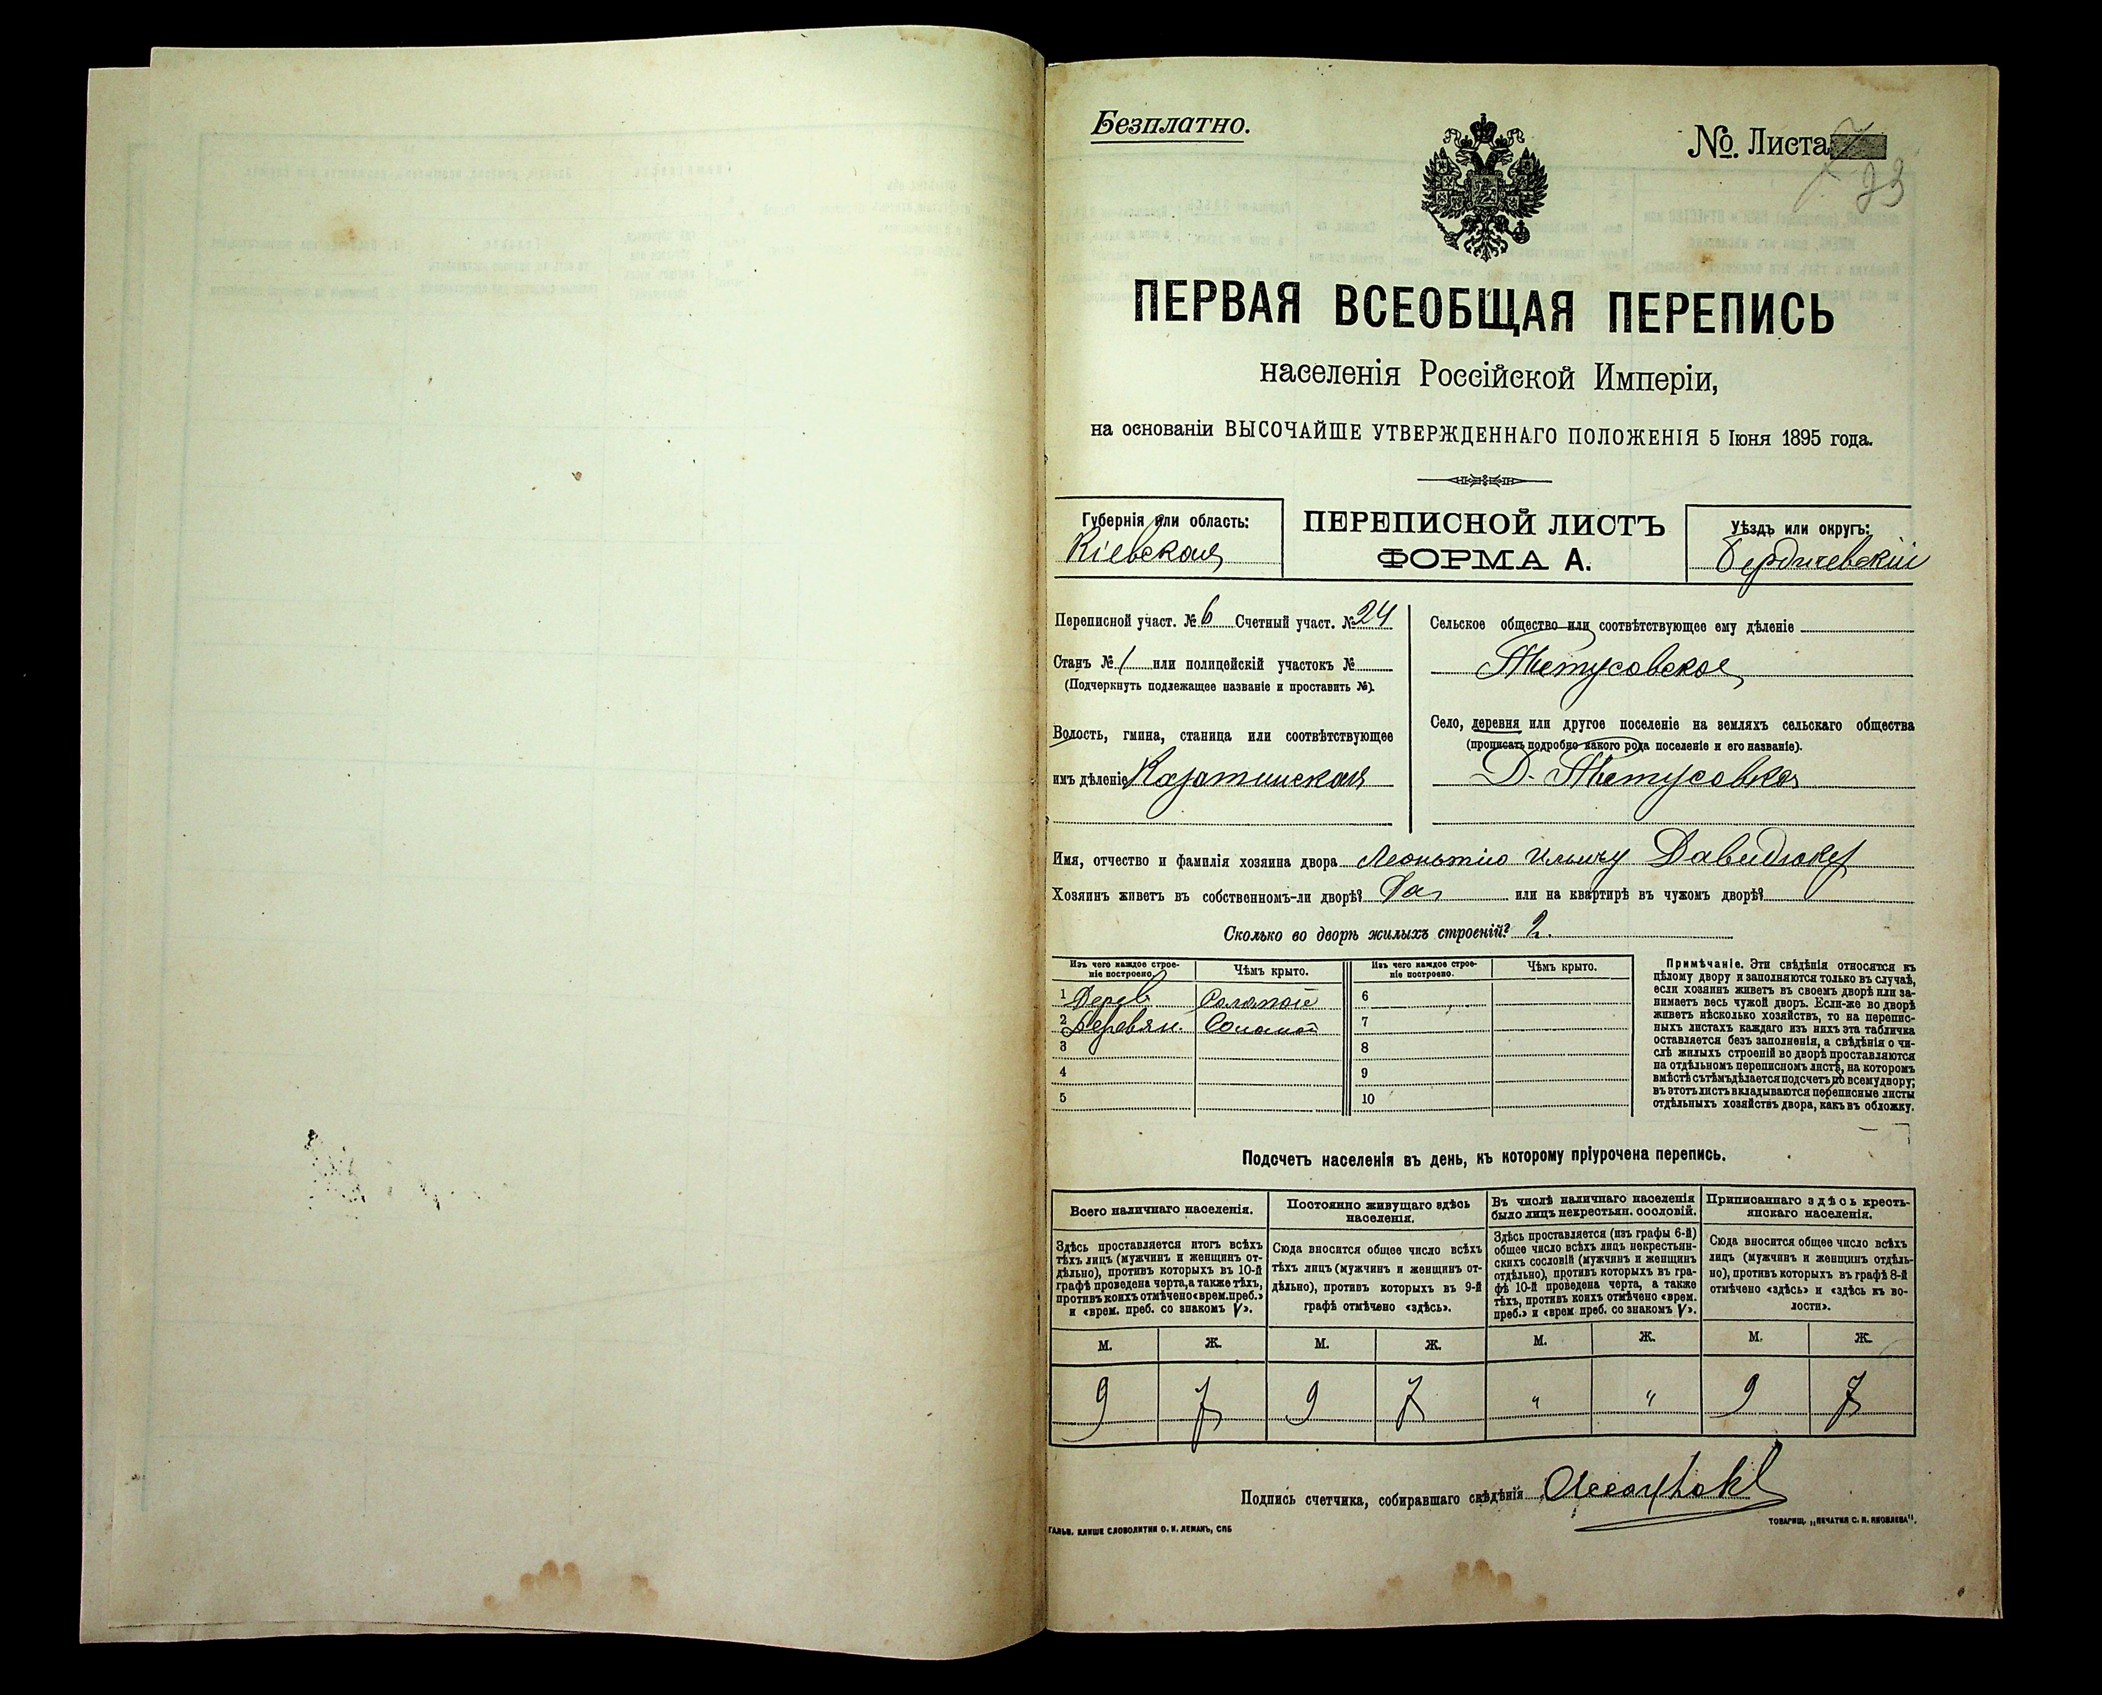 Безплатно.
№. Листа
93
ПЕРВАЯ ВСЕОБЩАЯ ПЕРЕПИСЬ
населенія Россійской Имперіи,
на основаніи ВЫСОЧАЙШЕ УТВЕРЖДЕННАГО ПОЛОЖЕНІЯ 5 Іюня 1895 года.
Губернія или область:
Кіевская
ПЕРЕПИСНОЙ ЛИСТЪ
ФОРМА А.
Уѣздъ или округъ:
Бердичевскій
Переписной участ. № 6 Счетный участ. № 24
Станъ № 1 или полицейскій участокъ №
(Подчеркнуть подлежащее названіе и проставить №).
Волость, гмина, станица или соотвѣтствующее
имъ дѣленіе Казатинская
Сельское общество или соотвѣтствующее ему дѣленіе
Титусовское
Село, деревня или другое поселеніе на земляхъ сельскаго общества
(прописать подробно какого рода поселеніе и его названіе).
Д. Титусовка
Имя, отчество и фамилія хозяина двора Леонтію Ильичу Давидюку
Хозяинъ живетъ въ собственномъ-ли дворѣ? Да или на квартирѣ въ чужомъ дворѣ?
Сколько во дворѣ жилыхъ строеній? 2.
Изъ чего каждое строе-
ніе построено.
Чѣмъ крыто.
Изъ чего каждое строе-
ніе построено.
Чѣмъ крыто.
1 Дерев. Соломой 6
2 Деревян. Соломой 7
3 8
4 9
5 10
Примѣчаніе. Эти свѣдѣнія относятся къ
цѣлому двору и заполняются только въ случаѣ,
если хозяинъ живетъ въ своемъ дворѣ или за-
нимаетъ весь чужой дворъ. Если-же во дворѣ
живетъ нѣсколько хозяйствъ, то на перепис-
ныхъ листахъ каждаго изъ нихъ эта табличка
оставляется безъ заполненія, а свѣдѣнія о чи-
слѣ жилыхъ строеній во дворѣ проставляются
на отдѣльномъ переписномъ листѣ, на которомъ
вмѣстѣ съ тѣмъ дѣлается подсчетъ по всему двору;
въ этотъ листъ вкладываются переписные листы
отдѣльныхъ хозяйствъ двора, какъ въ обложку.
Подсчетъ населенія въ день, къ которому пріурочена перепись.
Всего наличнаго населенія.
Здѣсь проставляется итогъ всѣхъ
тѣхъ лицъ (мужчинъ и женщинъ от-
дѣльно), противъ которыхъ въ 10-й
графѣ проведена черта, а также тѣхъ,
противъ коихъ отмѣчено «врем. преб.»
и «врем. преб. со знакомъ V».
Постоянно живущаго здѣсь
населенія.
Сюда вносится общее число всѣхъ
тѣхъ лицъ (мужчинъ и женщинъ от-
дѣльно), противъ которыхъ въ 9-й
графѣ отмѣчено «здѣсь».
Въ числѣ наличнаго населенія
было лицъ некрестьян. сословій.
Здѣсь проставляется (изъ графы 6-й)
общее число всѣхъ лицъ некрестьян-
скихъ сословій (мужчинъ и женщинъ
отдѣльно), противъ которыхъ въ гра-
фѣ 10-й проведена черта, а также
тѣхъ, противъ коихъ отмѣчено «врем.
преб.» и «врем преб. со знакомъ V».
Приписаннаго здѣсь кресть-
янскаго населенія.
Сюда вносится общее число всѣхъ
лицъ (мужчинъ и женщинъ отдѣль-
но), противъ которыхъ въ графѣ 8-й
отмѣчено «здѣсь» и «здѣсь къ во-
лости».
М. Ж. М. Ж. М. Ж. М. Ж.
9 7 9 7 " " 9 7
Подпись счетчика, собиравшаго свѣдѣнія
ГАЛЬВ. КЛИШЕ СЛОВОЛИТНИ О. И. ЛЕМАНЪ, СПБ
ТОВАРИЩ. „ПЕЧАТНЯ С. П. ЯКОВЛЕВА".